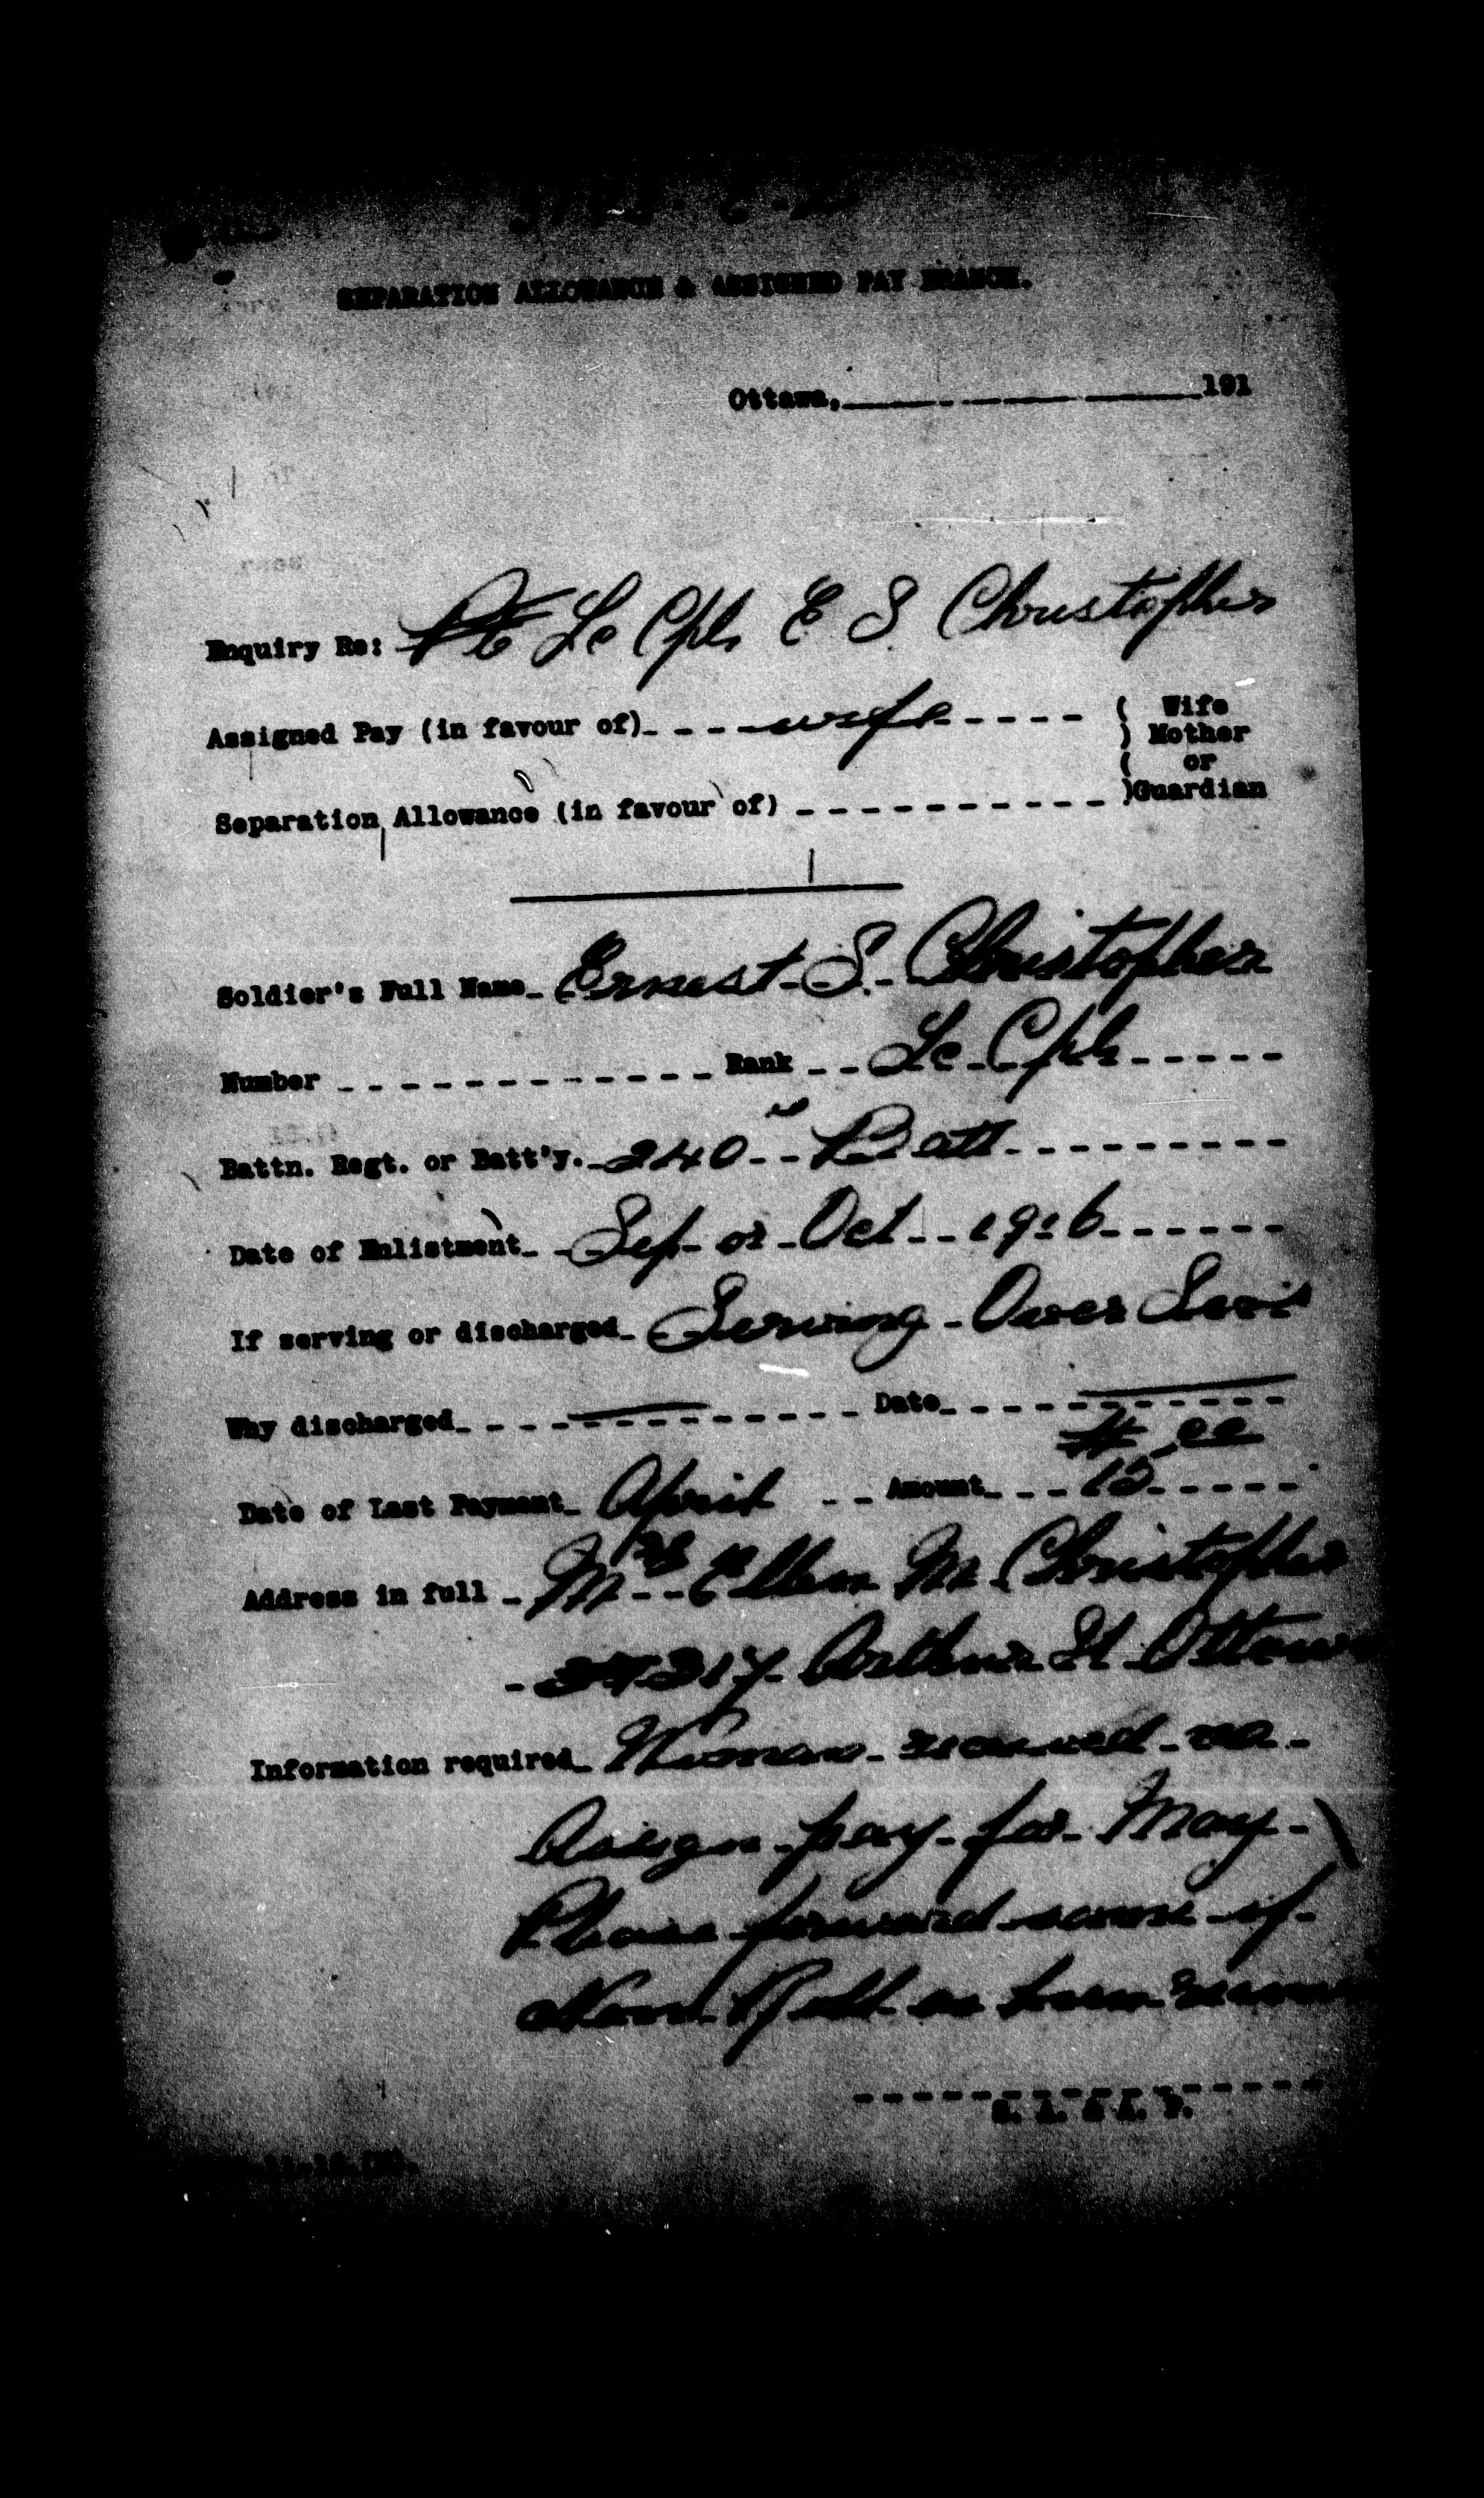 SEPARATION ALLOWANCE & ASSIGNED PAY BRANCH.
Ottawa, 191
Enquiry Re: Pte Lc Cpl E S Christopher
Assigned Pay (in favour of) wife ( Wife
) Mother
( or
Separation Allowance (in favour of) )Guardian
Soldier's Full Name Ernest S. Christopher
Number Rank Lc Cpl
Battn. Regt. or Batt'y. 240 Batt
Date of Enlistment Sep or Oct 1916
If serving or discharged Serving Over Seas
Why discharged Date
Date of Last Payment April Amount 15
Address in full Mrs Ellen M Christopher
317 Arthur St Ottawa
Information required Woman received no
Assign pay for May
Please forward same if
None
S. A. & A. P.